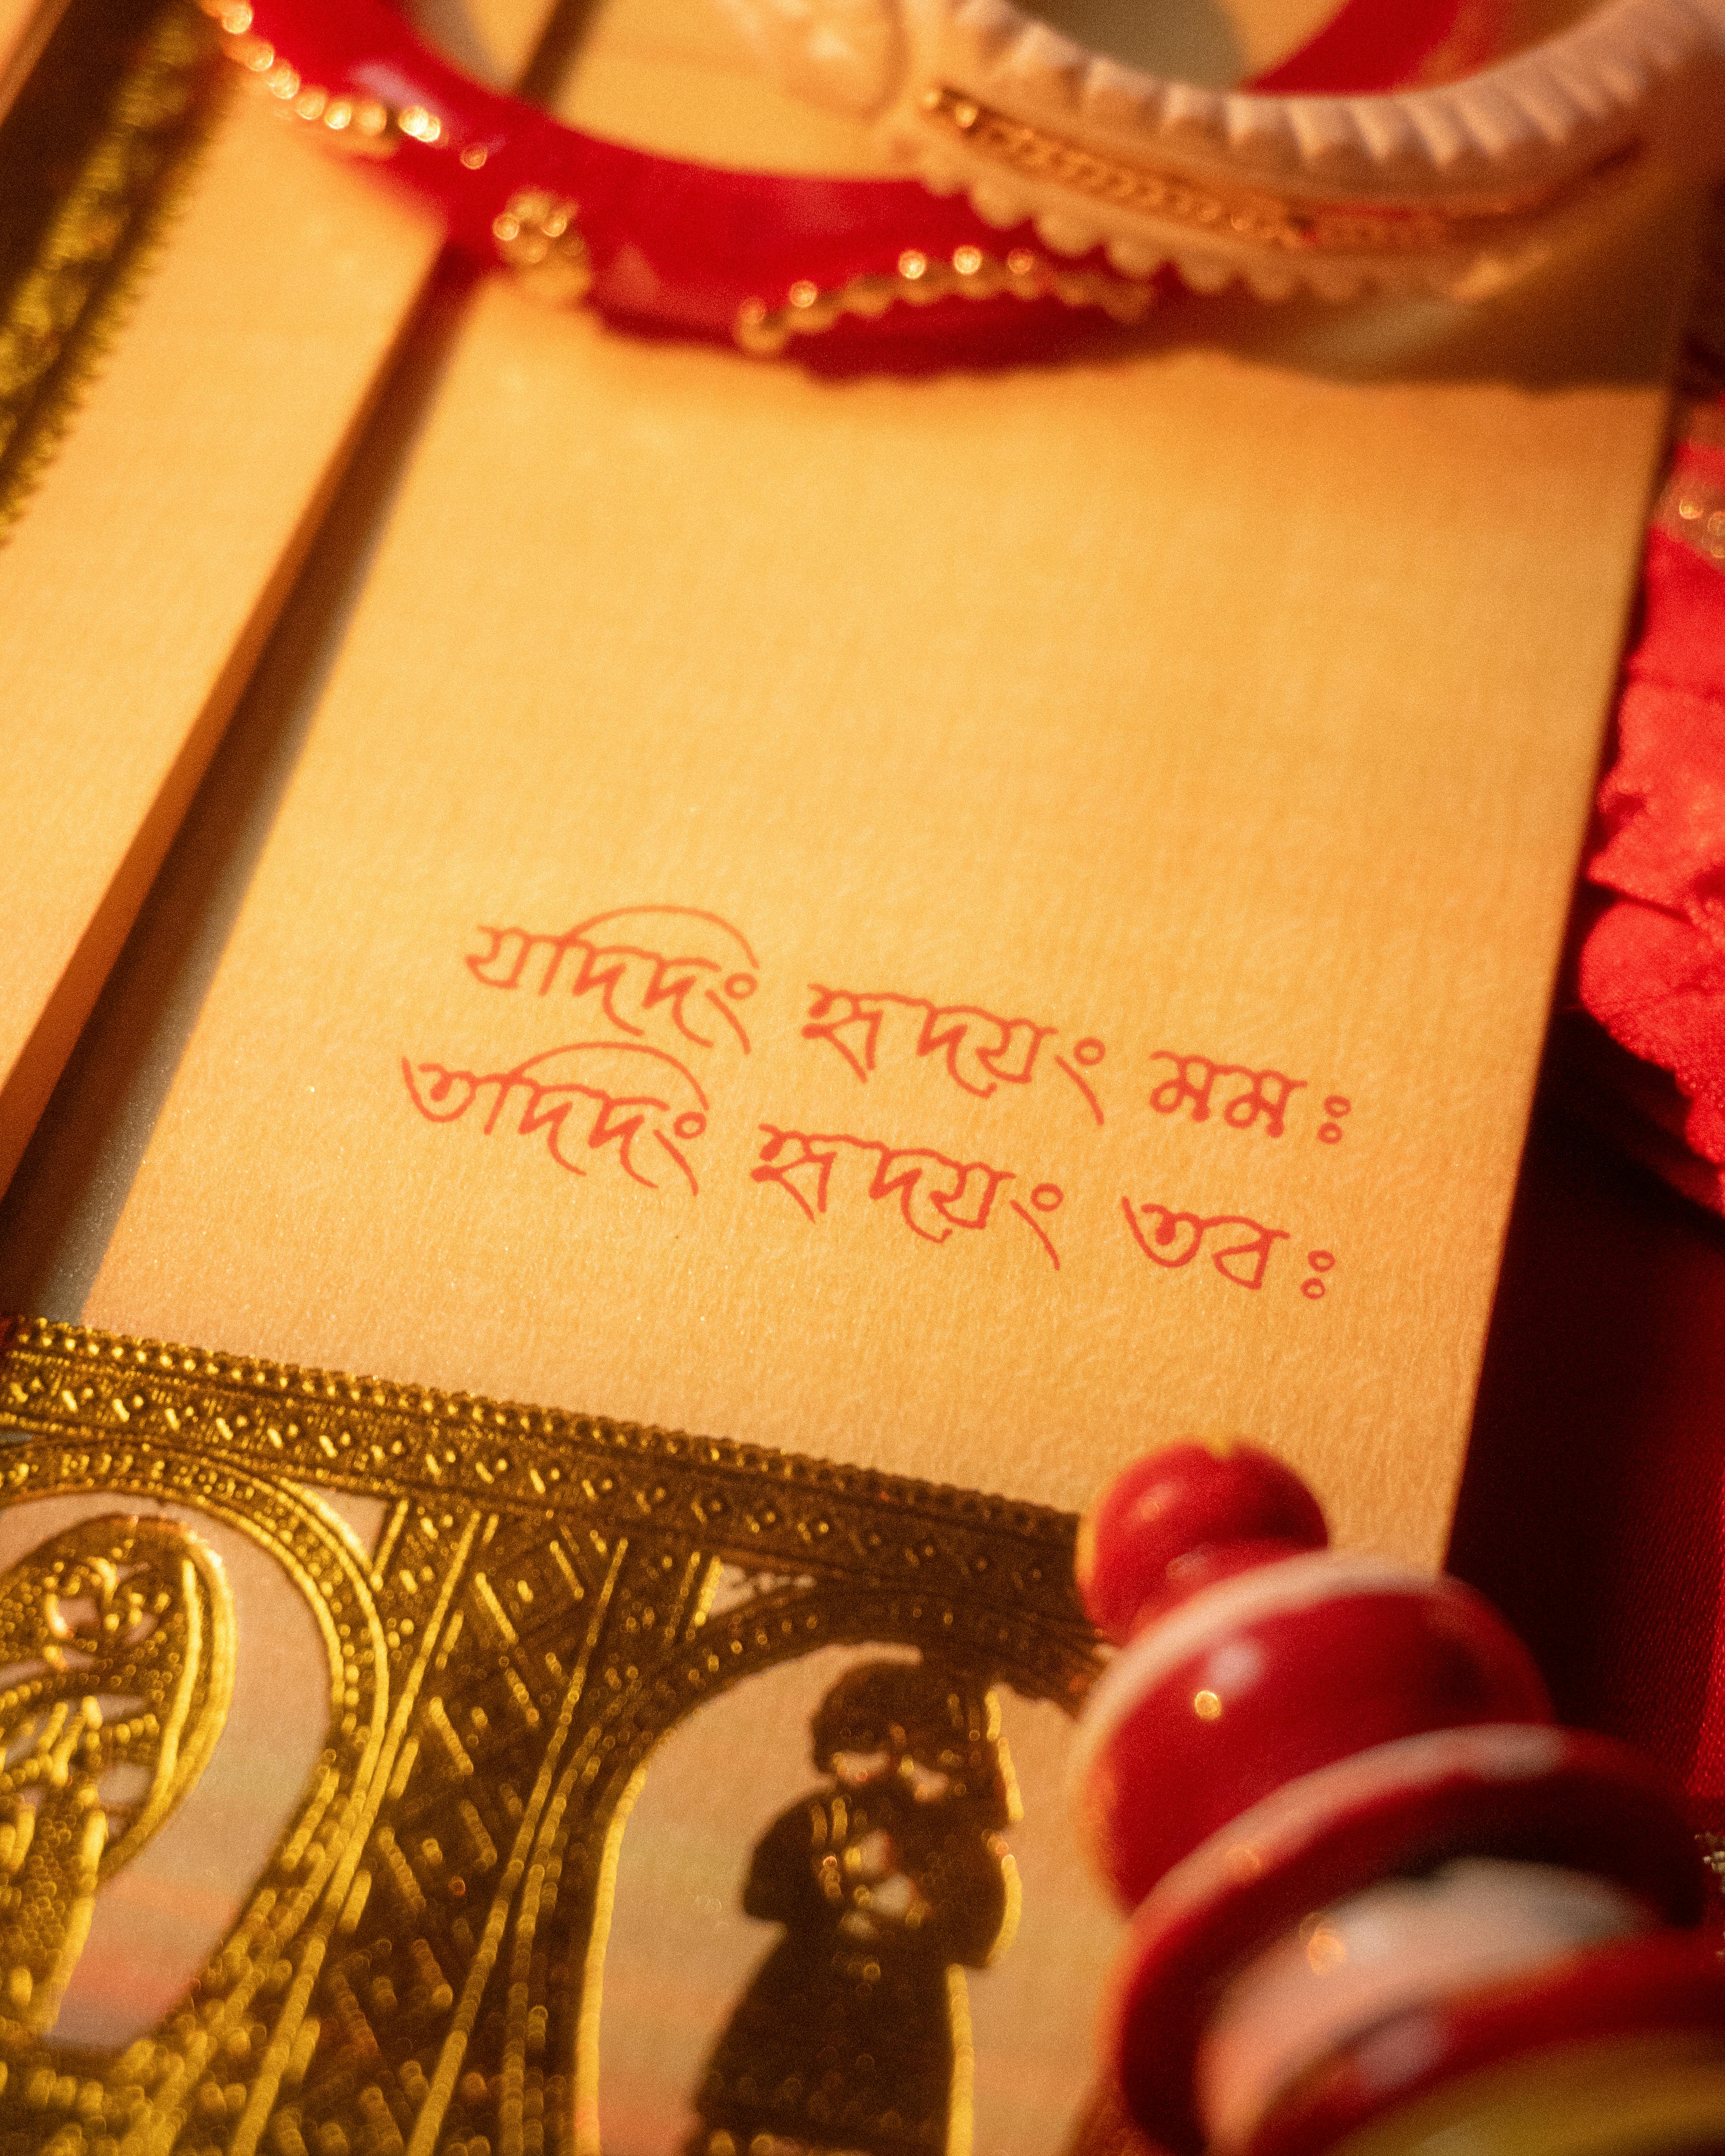 যদিদং হৃদয়ং মমঃ
তদিদং হৃদয়ং তবঃ